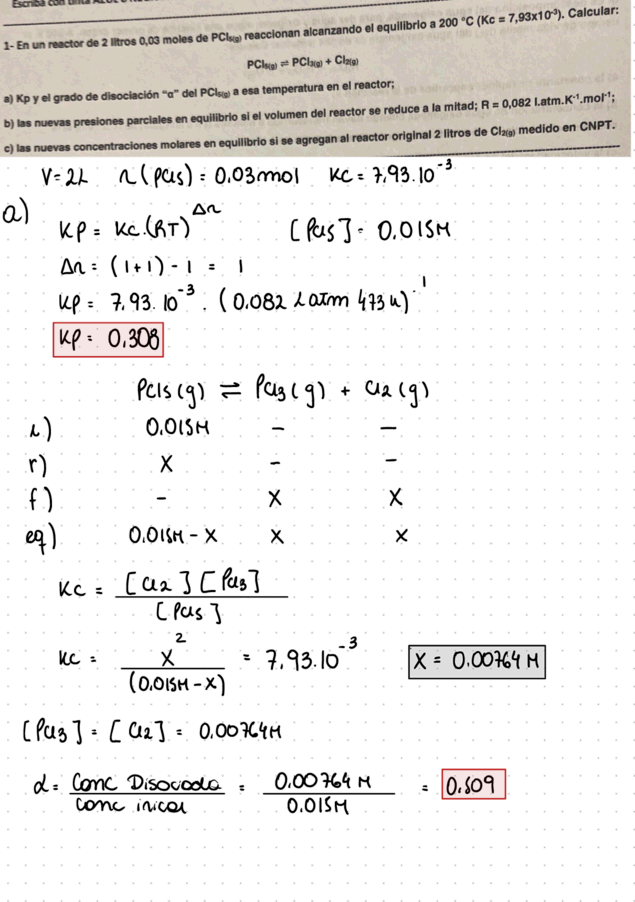 Escriba con tinta AZUL o
1- En un reactor de 2 litros 0,03 moles de PCl₅(g) reaccionan alcanzando el equilibrio a 200 °C (Kc = 7,93x10⁻³). Calcular:
PCl₅(g) ⇌ PCl₃(g) + Cl₂(g)
a) Kp y el grado de disociación “α” del PCl₅(g) a esa temperatura en el reactor;
b) las nuevas presiones parciales en equilibrio si el volumen del reactor se reduce a la mitad; R = 0,082 l.atm.K⁻¹.mol⁻¹;
c) las nuevas concentraciones molares en equilibrio si se agregan al reactor original 2 litros de Cl₂(g) medido en CNPT.
V=2L n(PCl5)=0.03mol Kc=7,93.10⁻³
a)
Kp= Kc.(RT)^Δn [PCl5]=0.015M
Δn= (1+1)-1 = 1
Kp= 7,93.10⁻³.(0.082 L atm 473 K)¹
Kp= 0,308
PCl5(g) ⇌ PCl3(g) + Cl2(g)
i) 0.015M - -
r) X - -
f) - X X
eq) 0.015M-X X X
Kc = [Cl2][PCl3] / [PCl5]
Kc = X² / (0.015M-X) = 7,93.10⁻³ X = 0.00764 M
[PCl3]=[Cl2]= 0,00764M
α= Conc Disociada / Conc inicial = 0.00764 M / 0.015M = 0.509